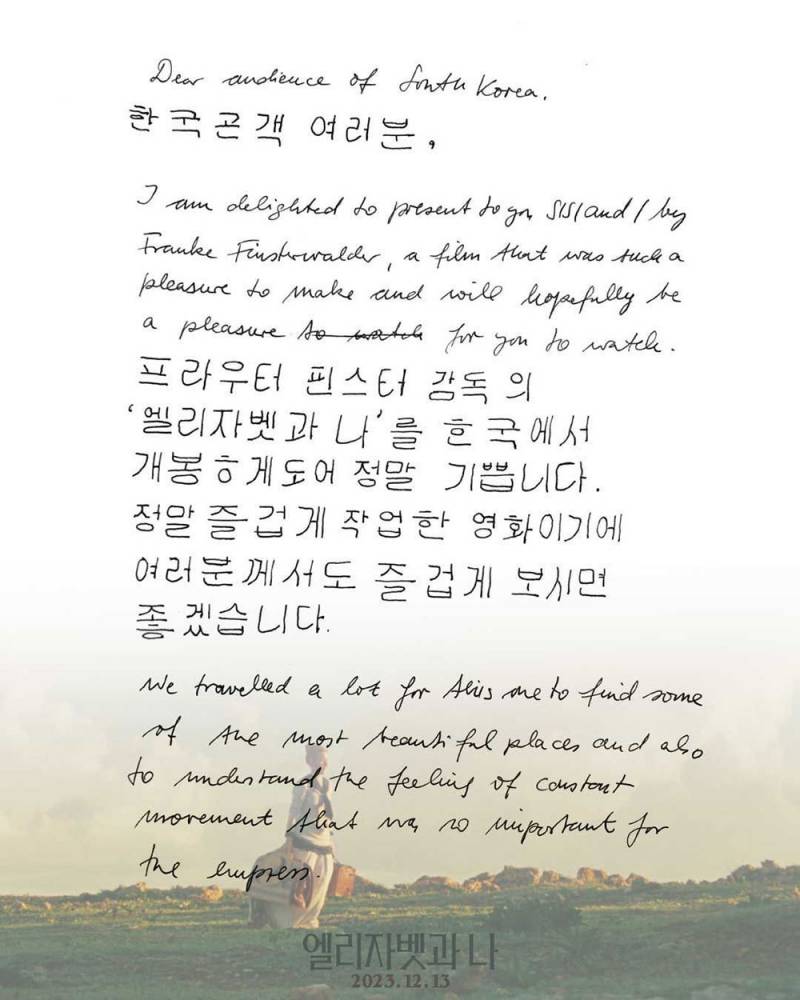 Dear audience of South Korea.
한국곤객 여러분,
I am delighted to present to you SISI and I by
Frauke Finsterwalder, a film that was such a
pleasure to make and will hopefully be
a pleasure to watch for you to watch.
프라우터 핀스터 감독 의
'엘리자벳과 나'를 한국에서
개봉ㅎ게도어 정말 기쁩니다.
정말 즐겁게 작업한 영화이기에
여러분께서도 즐겁게 보시면
좋겠습니다.
We travelled a lot for this one to find some
of the most beautiful places and also
to understand the feeling of constant
movement that was so important for
the empress.
엘리자벳과 나
2023.12.13